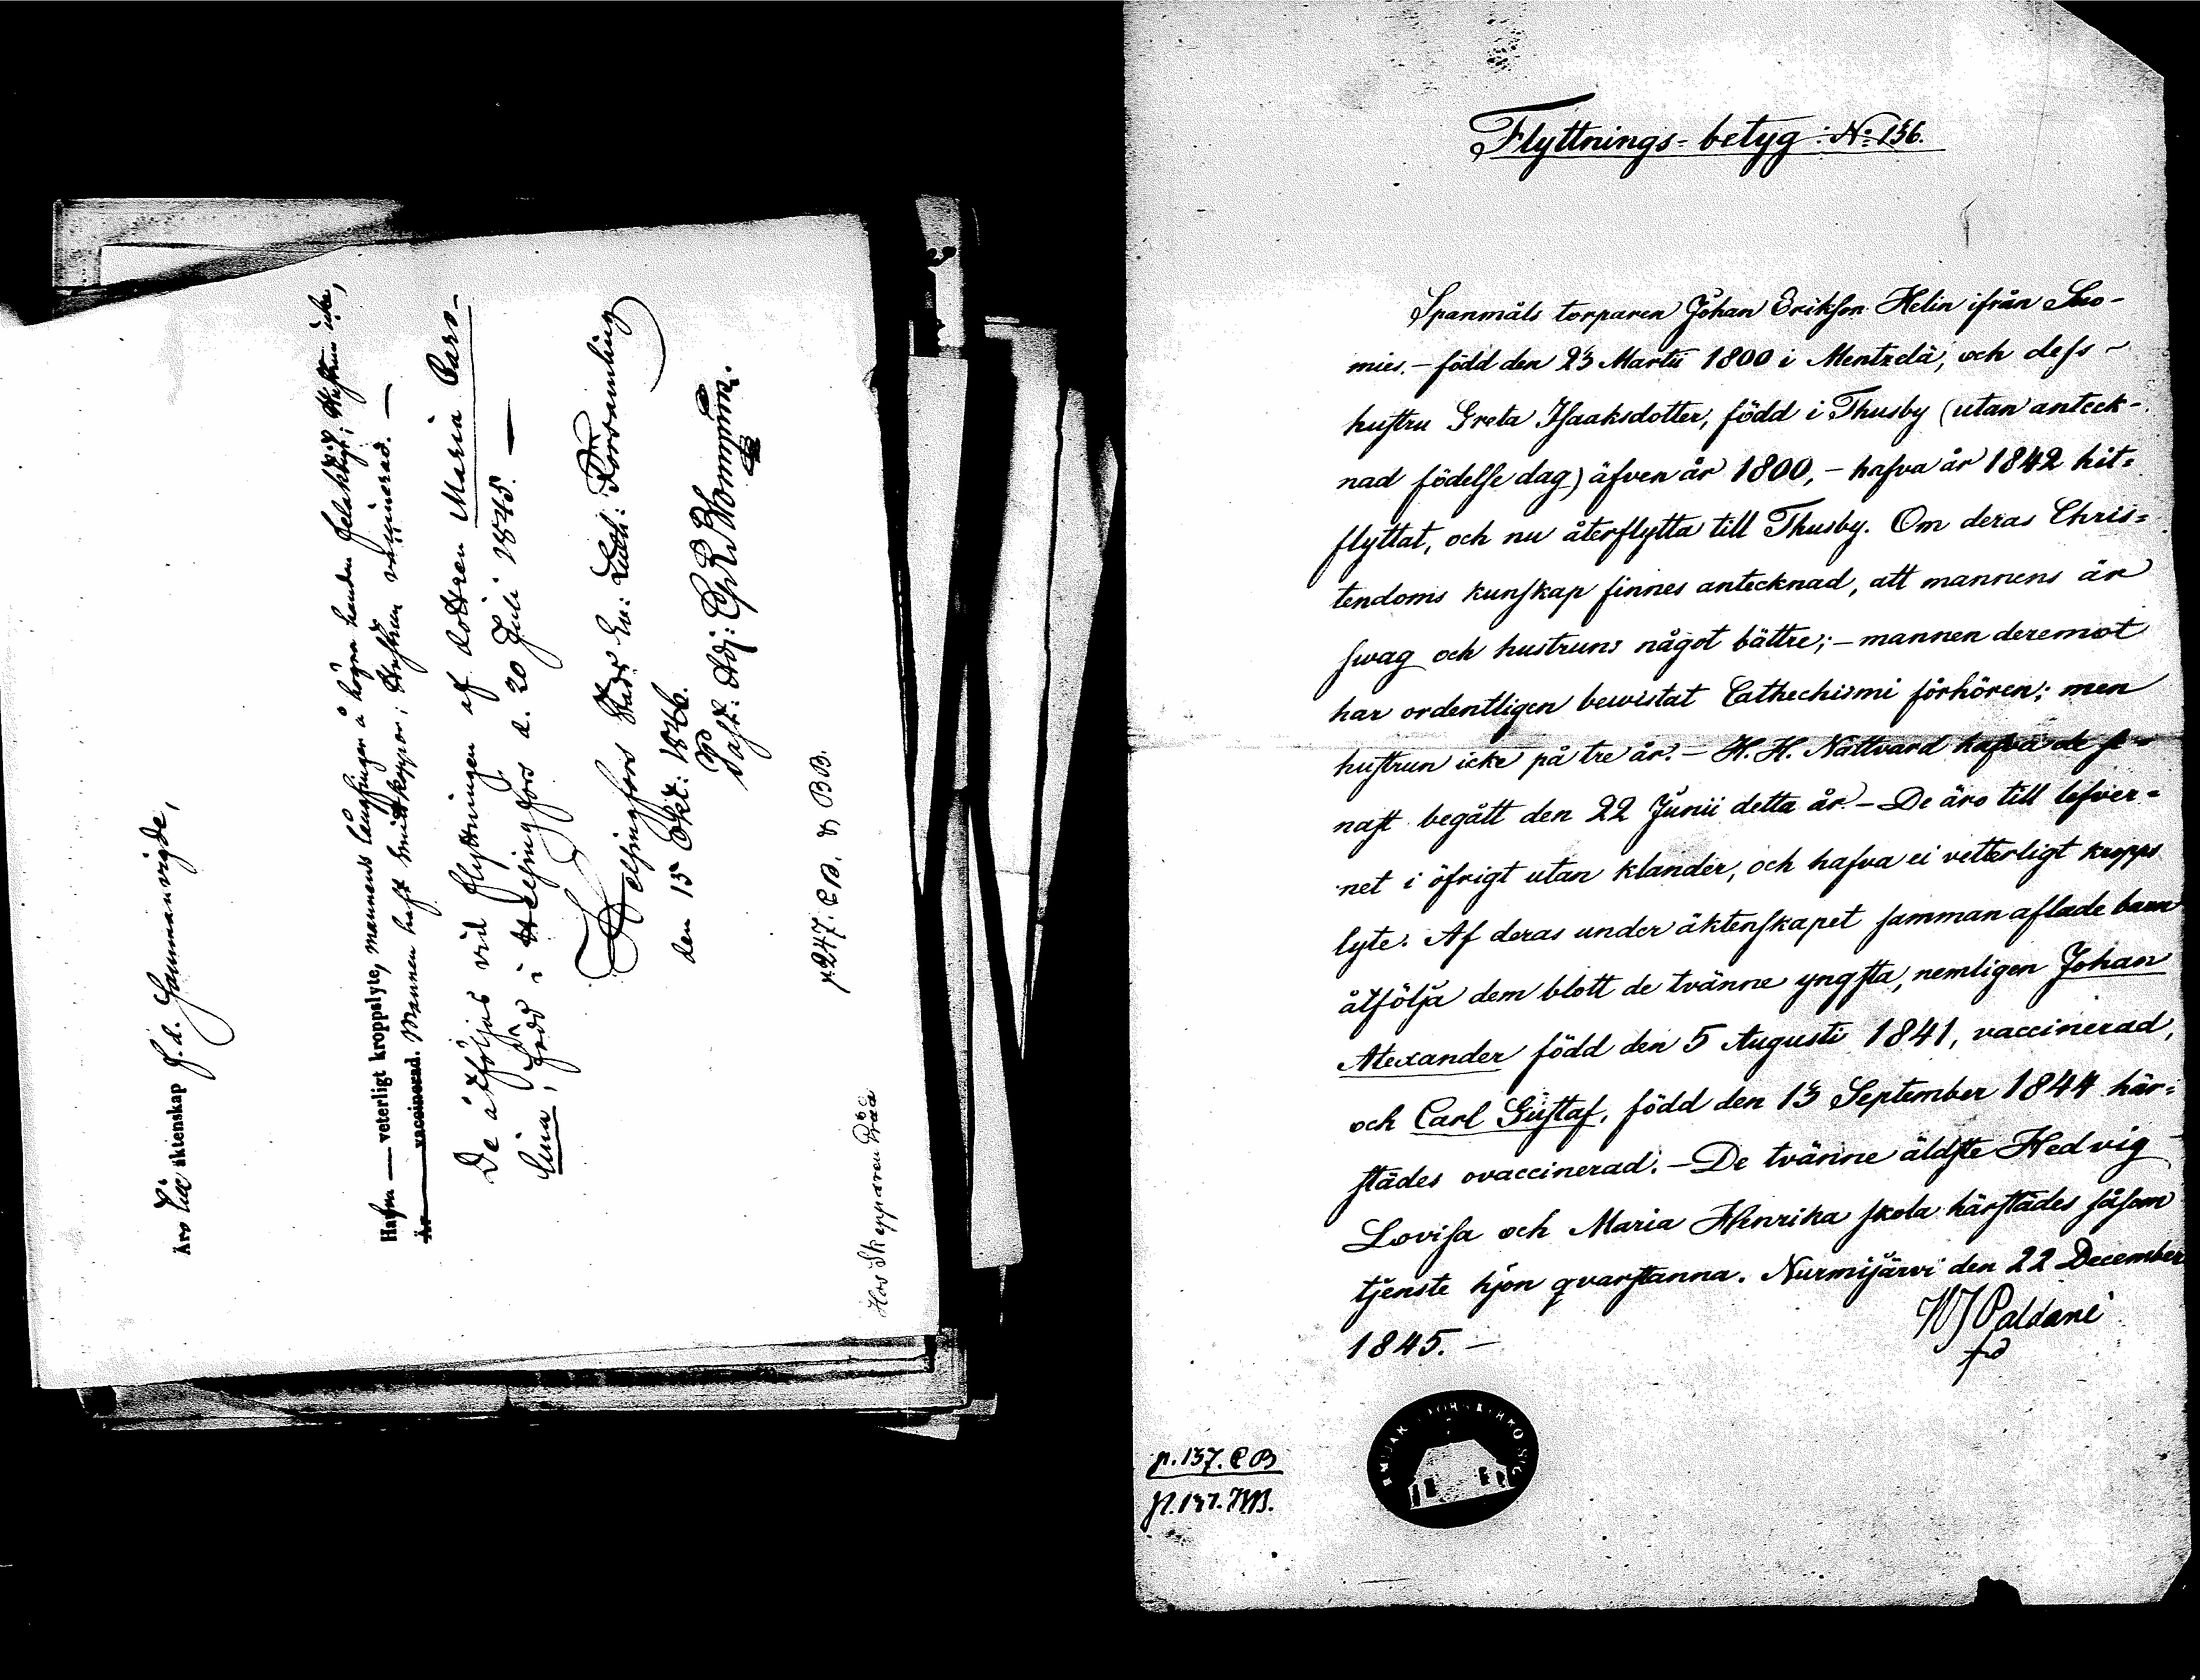 Äro till äktenskap s. d. sammanvigde,
Hafva — veterligt kroppslyte, mannens långfinger å högra handen hustrun icke,
Är vaccinerad. Mannen haft smittkoppor; Hustrun vaccinerad. —
De åtföljas vid flyttningen af dottren Maria Caro-
lina, född i Helsingfors d. 20 Juli 1845. —
Helsingfors Stads Ev: Luth: Församling
den 15 Okt: 1846.
Past: Adj:
p. 247. C B. & B B.
Hos Skepparen
Flyttnings-betyg: No 136.
Spanmåls torparen Johan Eriksson Helin ifrån Suo-
mies. – född den 23 Martii 1800 i Mentzelä, och dess
hustru Greta Isaaksdotter, född i Thusby (utan anteck-
nad födelse dag) äfven år 1800, – hafva år 1842 hit-
flyttat, och nu återflytta till Thusby. Om deras Chris-
tendoms kunskap finnes antecknad, att mannens är
swag och hustruns något bättre; – mannen deremot
har ordentligen bewistat Cathechismi förhören; men
hustrun icke på tre år. – H. H. Nattvard hafva de se-
nast begått den 22 Junii detta år – De äro till lefver-
net i öfrigt utan klander, och hafva ei vetterligt kropps
lyte. Af deras under äktenskapet samman aflade barn
åtfölja dem blott de tvänne yngsta, nemligen Johan
Alexander född den 5 Augusti 1841, vaccinerad,
och Carl Gustaf, född den 13 September 1844 här-
städes ovaccinerad. – De tvänne äldste Hedvig
Lovisa och Maria Henrika skola härstädes såsom
tjenste hjon qvarstanna. Nurmijärvi den 22 December
1845. –
WJ Paldani
p. 137. C B